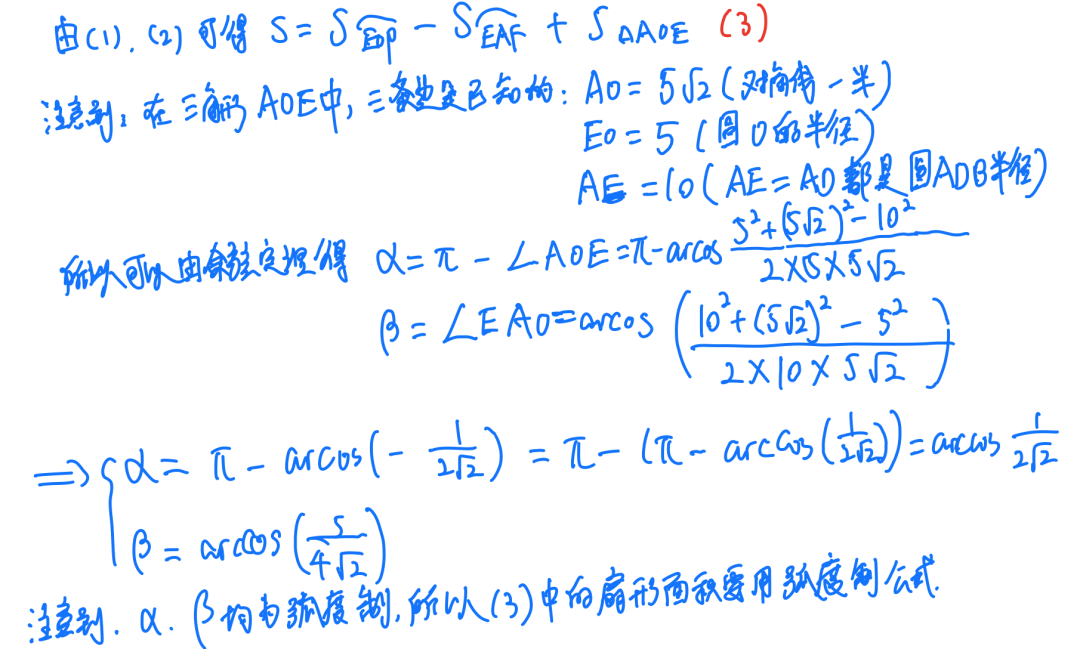 由(1).(2)可得 S = S⌢EOP − S⌢EAF + S△AOE (3)
注意到,在三角形AOE中,三条边是已知的: AO = 5√2 (对角线一半)
EO = 5 (圆O的半径)
AE = 10 (AE = AD 都是圆ADB半径)
所以可以由余弦定理得 α = π − ∠AOE = π − arcos (5² + (5√2)² − 10²) / (2×5×5√2)
β = ∠EAO = arcos ((10² + (5√2)² − 5²) / (2×10×5√2))
⟹ { α = π − arcos(− 1/(2√2)) = π − (π − arccos(1/(2√2))) = arccos 1/(2√2)
β = arccos(5/(4√2))
注意到. α. β均为弧度制,所以(3)中的扇形面积要用弧度制公式.